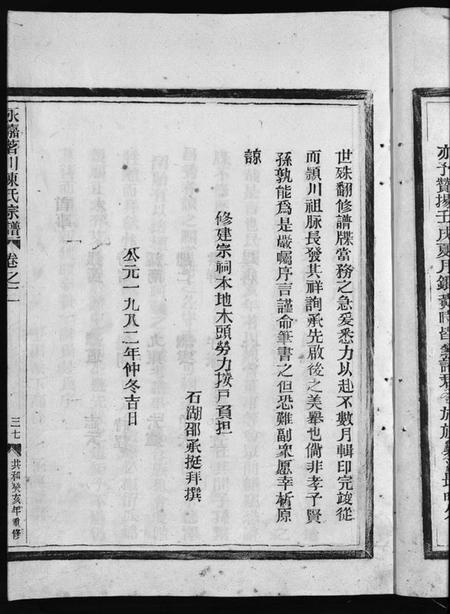 亦予贊揚壬戌夏月
世殊翻修譜牒當務之急爰悉力以赴不數月輯印完竣從
而潁川祖脉長發其祥詢承先啟後之美舉也倘非孝子賢
孫孰能為是嚴囑序言謹命筆書之但恐難副衆愿幸析原
諒
修建宗祠本地木頭勞力按戶負担
石湖邵承挺拜撰
公元一九八二年仲冬吉日
永嘉茗川陳氏宗譜
卷之二
三七
共和癸亥年重修